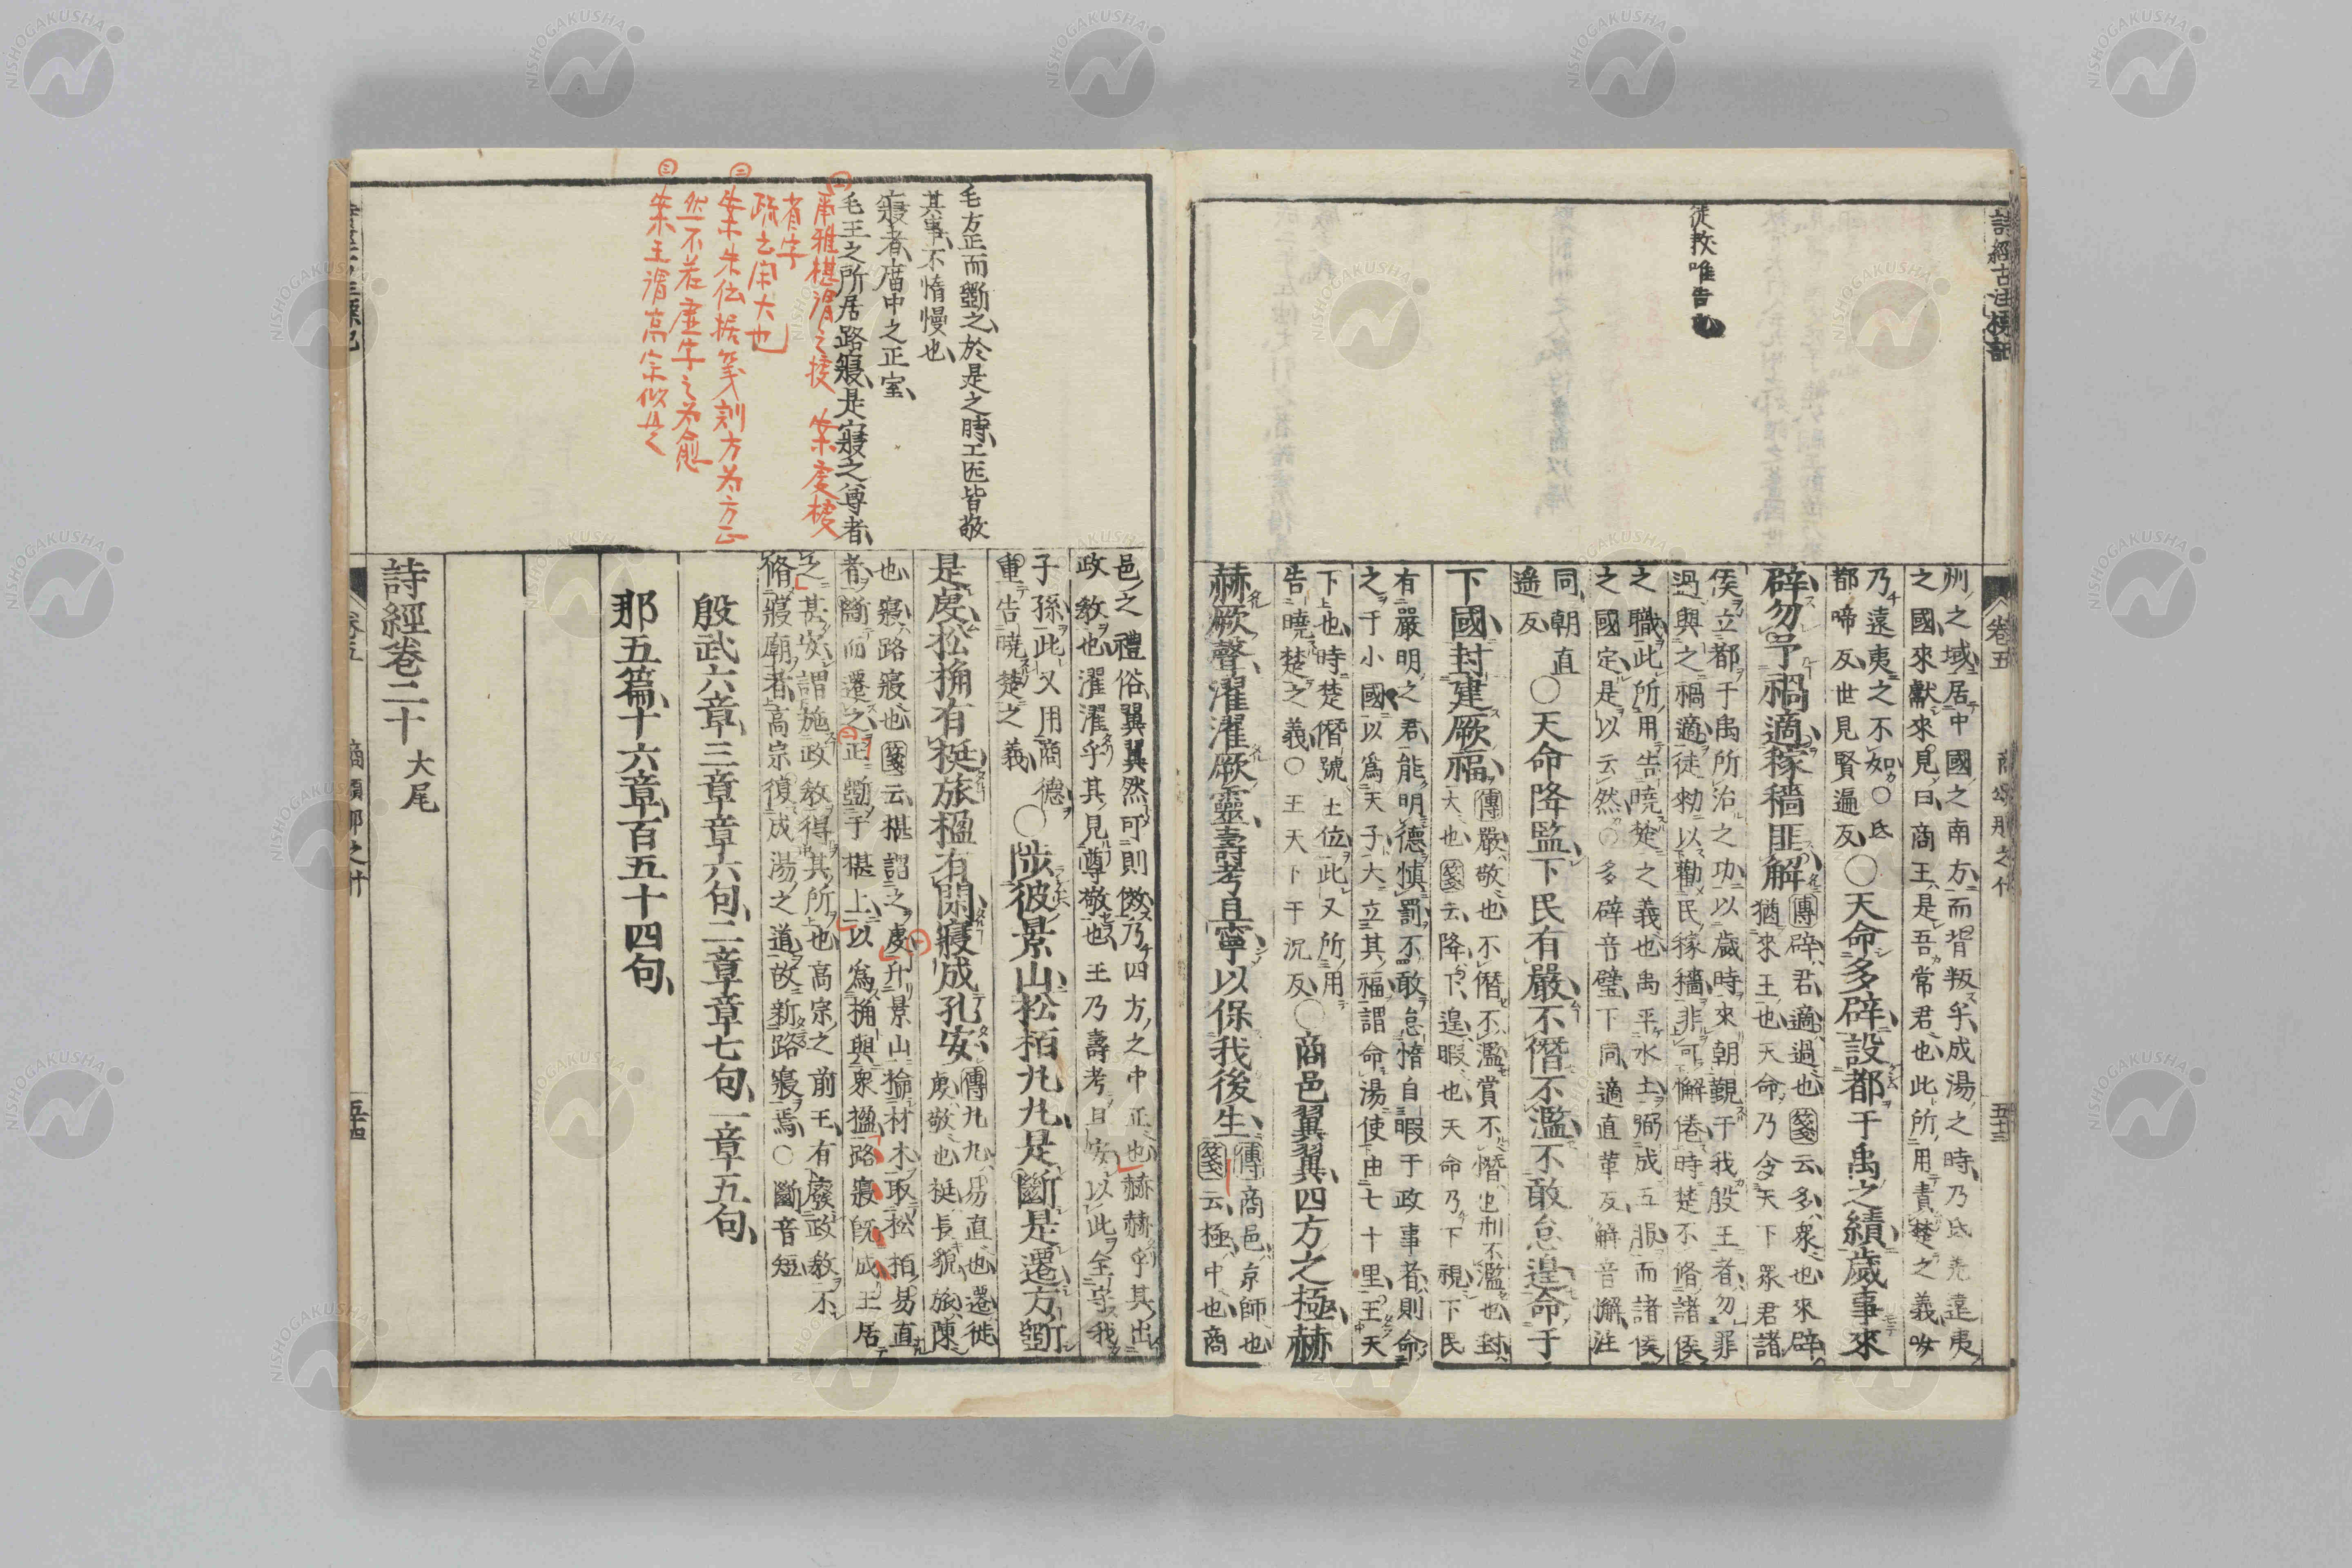 詩經古注標記
卷五
商頌那之什
五十三
徒救唯告
州之域居中國之南方而背叛乎成湯之時乃氐羌遠夷
之國來獻來見曰商王是吾常君也此所用責楚之義女
乃遠夷之不如○氐
都啼反世見賢遍反○天命多辟設都于禹之績歲事來
辟勿予禍適稼穡匪解傳辟君適過也箋云多衆也來辟
猶來王也天命乃令天下眾君諸
侯立都于禹所治之功以歲時來朝覲于我殷王者勿罪
過與之禍適徒勑以勸民稼穡非可懈倦時楚不脩諸侯
之職此所用告曉楚之義也禹平水土弼成五服而諸侯
之國定是以云然○多辟音璧下同適直革反解音懈注
同朝直
遙反○天命降監下民有嚴不僭不濫不敢怠遑命于
下國封建厥福傳嚴敬也不僭不濫賞不僭也刑不濫也封
大也箋云降下遑暇也天命乃下視下民
有嚴明之君能明德慎罰不敢怠惰自暇于政事者則命
之于小國以爲天子大立其福謂命湯使由七十里王天
下也時楚僭號王位此又所用
告曉楚之義○王天下于況反○商邑翼翼四方之極赫
赫厥聲濯濯厥靈壽考且寧以保我後生傳商邑京師也
箋云極中也商
邑之禮俗翼翼然可則傚乃四方之中正也赫赫乎其出
政教也濯濯乎其見尊敬也王乃壽考且安以此全守我
子孫此又用商德
重告曉楚之義○陟彼景山松柏丸丸是斷是遷方斲
是虔松桷有梴旅楹有閑寢成孔安傳丸丸易直也遷徙
虔敬也梴長貌旅陳
也寢路寢也箋云椹謂之虔升景山掄材木取松柏易直
者斷而遷之正斲于椹上以爲桷與衆楹路寢旣成王居
之甚安謂施政教得其所也高宗之前王有廢政教不
脩寢廟者高宗復成湯之道故新路寢焉○斷音短
殷武六章三章章六句二章章七句一章五句
那五篇十六章百五十四句
詩經卷二十 大尾
毛方正而斲之於是之時工匠皆敬
其事不惰慢也
寢者庿中之正室
毛王之所居路寢是寢之尊者
㊀爾雅椹謂之榩 案虔榩
省字
疏云閑大也
㊁案朱仏據箋訓方为方正
然不若虛字之为愈
㊂案王謂高宗似是
五十四